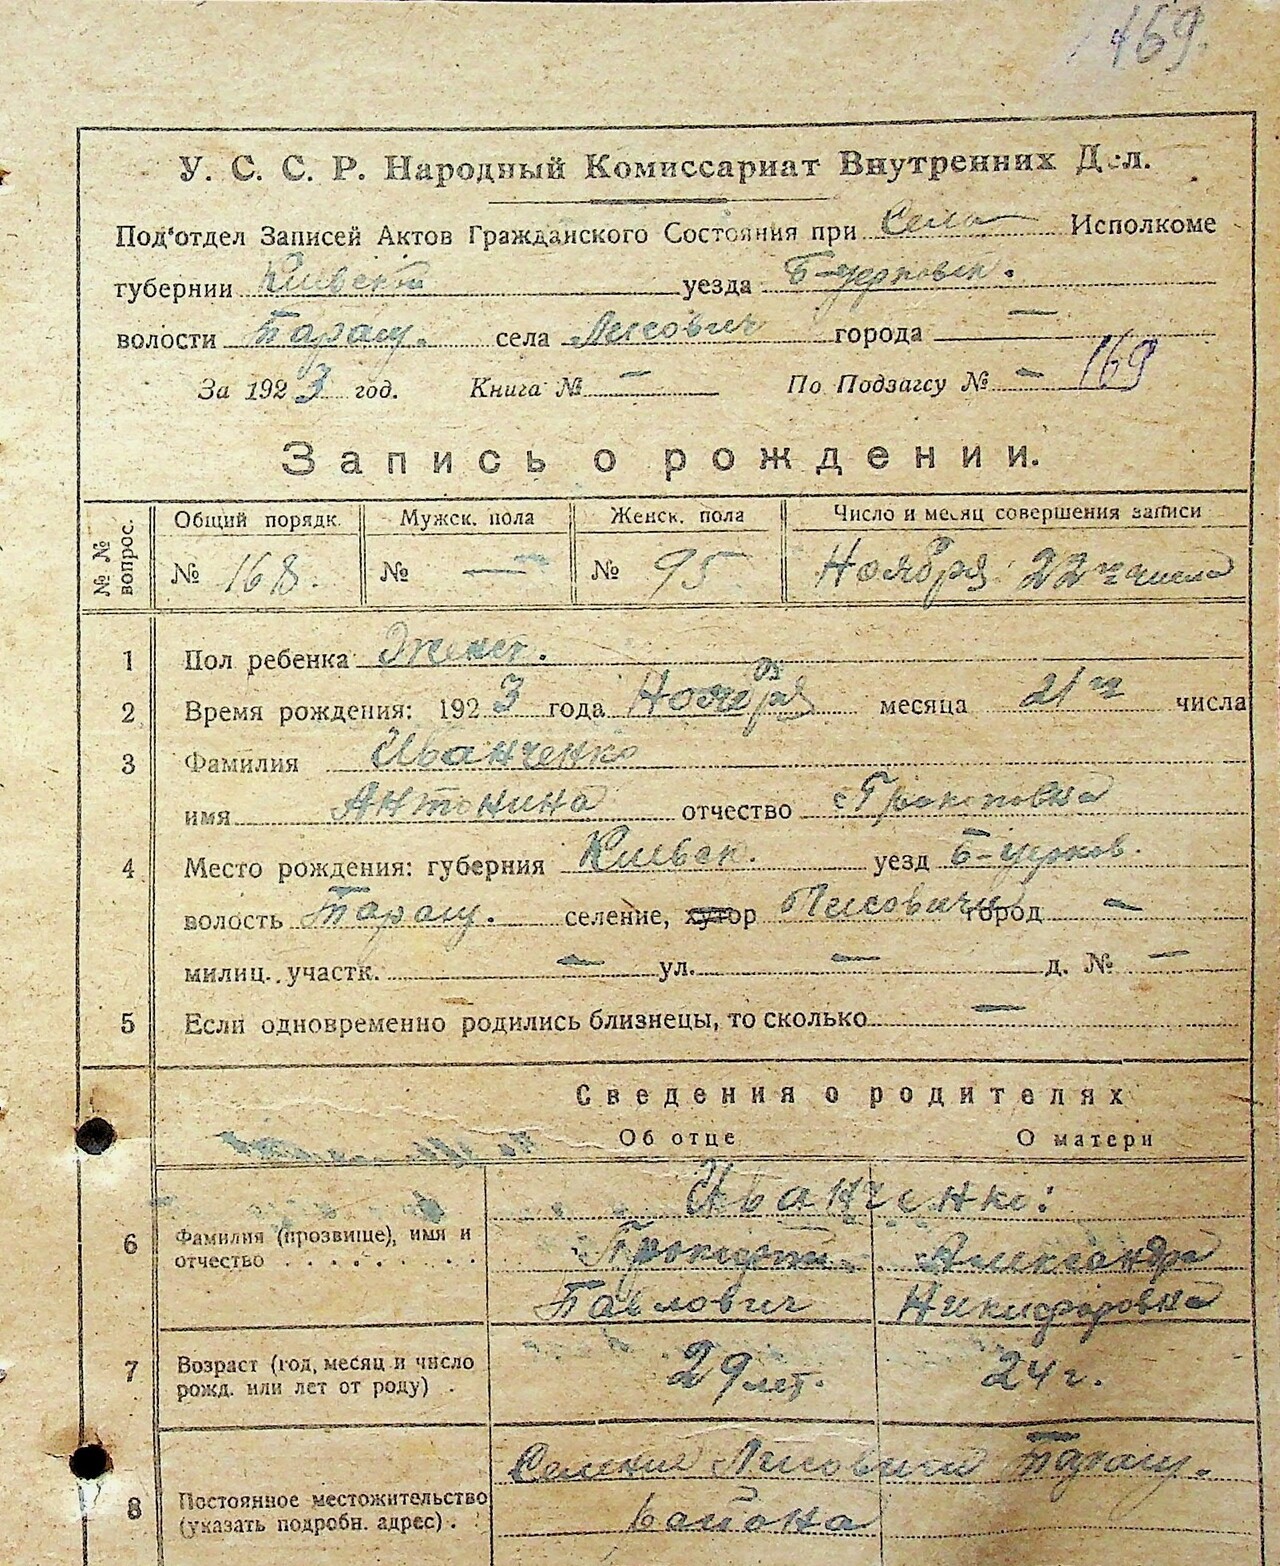 169.
У. С. С. Р. Народный Комиссариат Внутренних Дел.
Под'отдел Записей Актов Гражданского Состояния при Села Исполкоме
губернии Киевск уезда Б-церковск.
волости Таращ. села Лисович города —
За 1923 год. Книга № — По Подзагсу № — 169
Запись о рождении.
№ № вопрос.
Общий порядк. Мужск. пола Женск. пола Число и месяц совершения записи
№ 168. № — № 95 Ноября 22го числа
1 Пол ребенка Женск.
2 Время рождения: 1923 года Ноября месяца 21го числа
3 Фамилия Иванченко
имя Антонина отчество Прокоповна
4 Место рождения: губерния Киевск. уезд Б-церков.
волость Таращ. селение, хутор Лисовичи город —
милиц. участк. — ул. — д. № —
5 Если одновременно родились близнецы, то сколько —
Сведения о родителях
Об отце О матери
Иванченко:
6 Фамилия (прозвище), имя и отчество . . . . . . . . Александра
Павлович Никифоровна
7 Возраст (год, месяц и число рожд. или лет от роду) . 29 лет. 24 г.
Селение Лисовичи Таращ.
8 Постоянное местожительство (указать подробн. адрес) . района